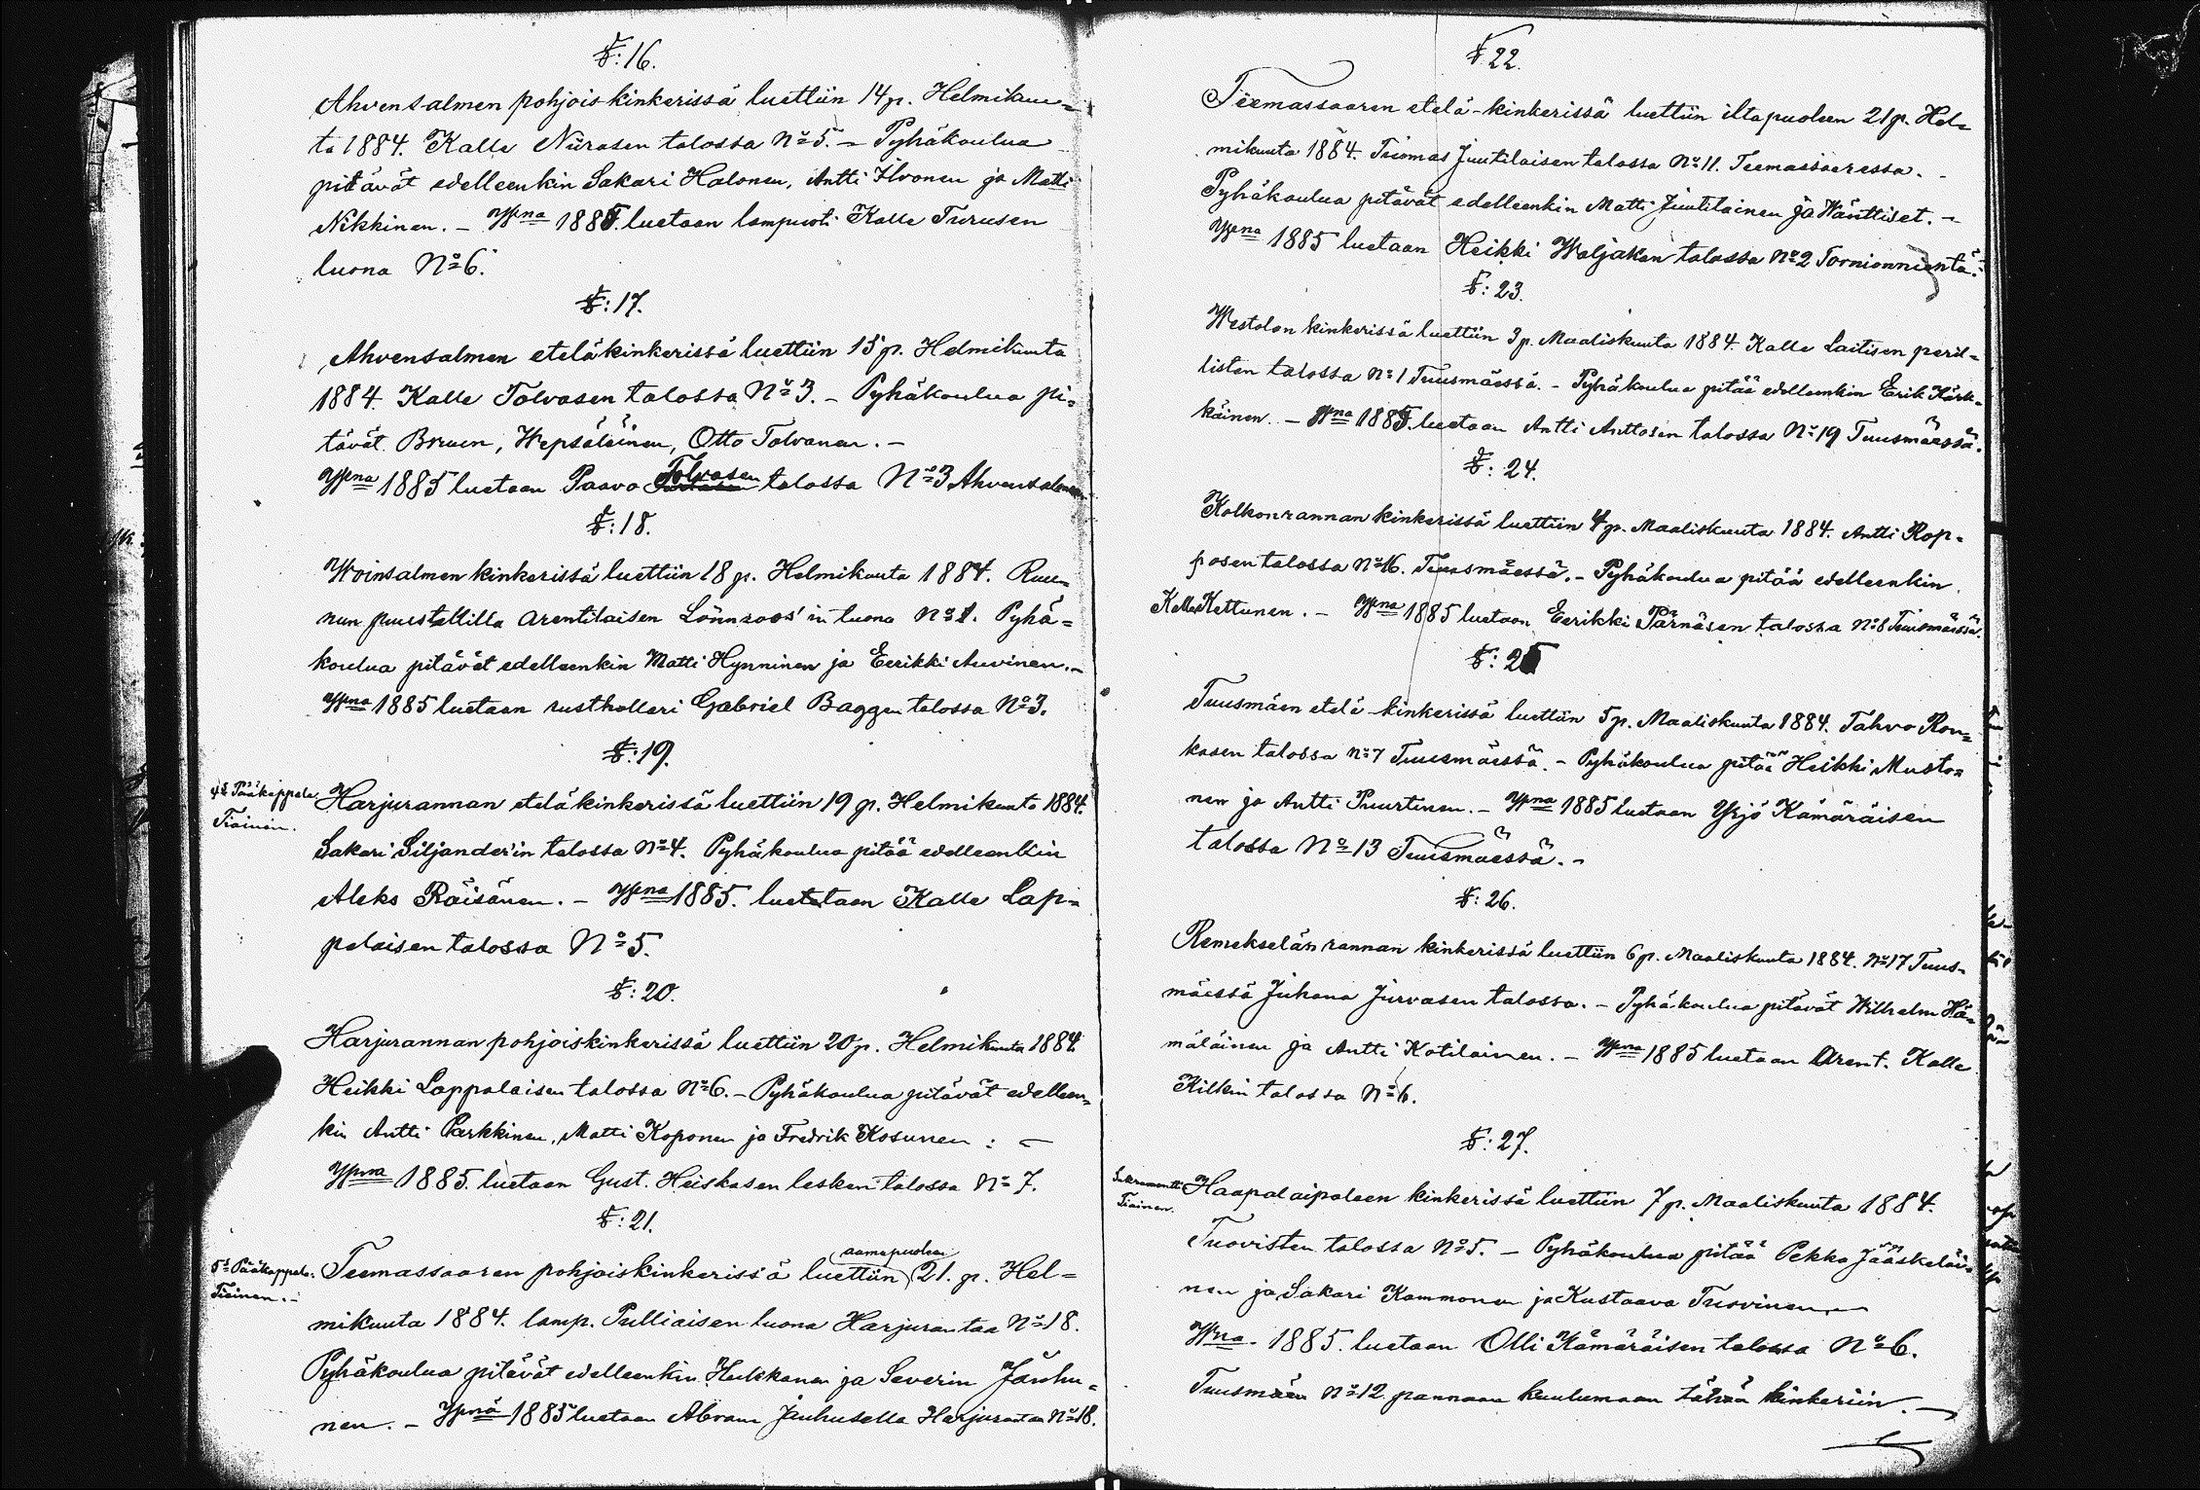 §:16.
Ahvensalmen pohjois kinkerissä luettiin 14 p. Helmikuu=
ta 1884. Kalle Niirasen talossa No 5. – Pyhäkoulua
pitävät edelleenkin Sakari Halonen, Antti Ilvonen ja Matti
Nikkinen. – Wna 1885. luetaan lampuoti Kalle Turusen
luona No 6.
§:17.
Ahvensalmen eteläkinkerissä luettiin 15 p. Helmikuuta
1884. Kalle Tolvasen talossa No 3. – Pyhäkoulua pi=
tävät Bruun, Wepsäläinen, Otto Tolvanen. –
Wna 1885 luetaan Paavo Tolvasen talossa No 3 Ahvensalmen
§:18.
Woinsalmen kinkerissä luettiin 18 p. Helmikuuta 1884. Ruu=
nun puustellilla arentilaisen Lönnroos'in luona No 1. Pyhä=
koulua pitävät edelleenkin Matti Hynninen ja Eerikki Auvinen. –
Wna 1885 luetaan rusthollari Gabriel Baggen talossa No 3.
§:19.
4s Pääkappale
Tiainen.
Harjurannan eteläkinkerissä luettiin 19 p. Helmikuuta 1884.
Sakari Siljander'in talossa No 4. Pyhäkoulua pitää edelleenkin
Aleks Räisänen. – Wna 1885. luetataan Kalle Lap=
palaisen talossa No 5.
§:20.
Harjurannan pohjoiskinkerissä luettiin 20 p. Helmikuuta 1884
Heikki Lappalaisen talossa No 6. – Pyhäkoulua pitävät edelleen=
kin Antti Parkkinen, Matti Koponen ja Fredrik Kosunen : –
Wna 1885. luetaan Gust. Heiskasen lesken talossa No 7.
§:21.
5s Pääkappale.
Tiainen. –
aamupuoleen
Teemassaaren pohjoiskinkerissä luettiin 21. p. Hel=
mikuuta 1884. lamp. Pulliaisen luona Harjurantaa No 18.
Pyhäkoulua pitävät edelleenkin Heikkanen ja Severin Jäuhu=
nen. – Wna 1885 luetaan Abram Jäuhusella Harjurantaa No 18.
§ 22.
Teemassaaren etelä-kinkerissä luettiin iltapuoleen 21 p. Hel=
mikuuta 1884. Tuomas Juutilaisen talossa No 11. Teemassaaressa.
Pyhäkoulua pitävät edelleenkin Matti Juutilainen ja Wänttiset. –
Wna 1885 luetaan Heikki Waljakan talossa No 2 Tornionnientä.
§:23.
Westolan kinkerissä luettiin 3 p. Maaliskuuta 1884. Kalle Laitisen peril=
listen talossa No 1 Tuusmäessä. – Pyhäkoulua pitää edelleenkin Erik Kärk=
käinen. – Wna 1885. luetaan Antti Anttosen talossa No 19 Tuusmäessä.
§:24.
Kolkonrannan kinkerissä luettiin 4 p. Maaliskuuta 1884. Antti Rop=
posen talossa No 16. Tuusmäessä. – Pyhäkoulua pitää edelleenkin
Kalle Kettunen. – Wna 1885 luetaan Eerikki Pärnäsen talossa No 8 Tuusmäessä.
§:25
Tuusmäen etelä-kinkerissä luettiin 5 p. Maaliskuuta 1884. Tahvo Ron=
kasen talossa No 7 Tuusmäessä. – Pyhäkoulua pitää Heikki Musto=
nen ja Antti Puurtinen. – Wna 1885 luetaan Yrjö Kämäräisen
talossa No 13 Tuusmäessä. –
§:26.
Remekselän rannan kinkerissä luettiin 6 p. Maaliskuuta 1884. No 17 Tuus=
mäessä Juhana Jurvasen talossa. – Pyhäkoulua pitävät Wilhelm Hä=
mäläinen ja Antti Kotilainen. – Wna 1885 luetaan Arent. Kalle
Kilkin talossa No 6.
§:27.
Sakramentti
Tiainen.
Haapalaipalaen kinkerissä luettiin 7 p. Maaliskuuta 1884.
Tuovisten talossa No 5. – Pyhäkoulua pitää Pekka Jääskeläi=
nen ja Sakari Kammonen ja Kustaava Tuovinen –
Wna 1885. luetaan Olli Kämäräisen talossa No 6.
Tuusmäen No 12 pannaan kuulumaan tähän kinkeriin. –